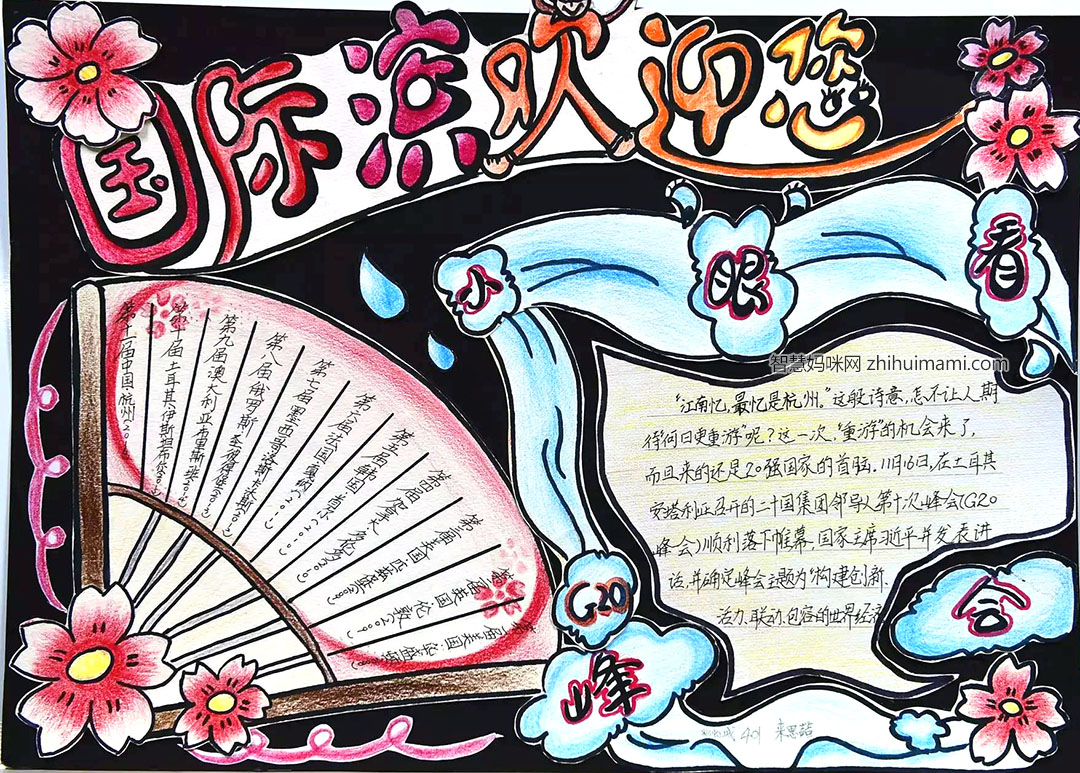 国际滨欢迎您
小眼看
G20
峰会
智慧妈咪网 zhihuimami.com
"江南忆,最忆是杭州。"这般诗意,怎不让人期
待"何日更重游"呢?这一次,"重游"的机会来了,
而且来的还是20强国家的首脑.11月16日,在土耳其
安塔利亚召开的二十国集团领导人第十次峰会(G20
峰会)顺利落下帷幕,国家主席习近平并发表讲
话,并确定峰会主题为"构建创新、
活力、联动、包容的世界经济
第十一届中国杭州
第十届土耳其伊斯坦布尔
第九届澳大利亚布里斯班
第八届俄罗斯圣彼得堡
第七届墨西哥洛斯卡沃斯
第六届法国戛纳
第五届韩国首尔
第四届加拿大多伦多
第三届美国匹兹堡
第二届英国伦敦
第一届美国华盛顿
401